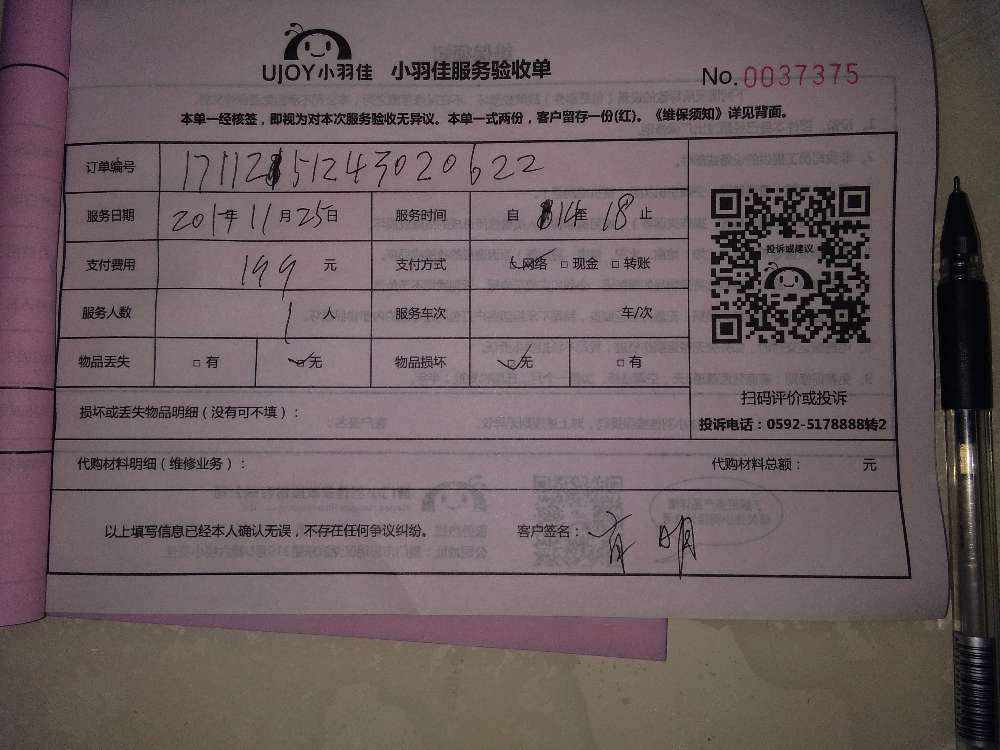 UJOY小羽佳 小羽佳服务验收单 No.0037375
本单一经核签，即视为对本次服务验收无异议。本单一式两份，客户留存一份(红)。《维保须知》详见背面。
订单编号 1711251243020622
服务日期 2017年11月25日 服务时间 自 14至 18止
支付费用 199 元 支付方式 □网络 □现金 □转账
投诉或建议
服务人数 1 人 服务车次 车/次
物品丢失 □有 □无 物品损坏 □无 □有
扫码评价或投诉
损坏或丢失物品明细（没有可不填）：
投诉电话：0592-5178888转2
代购材料明细（维修业务）： 代购材料总额： 元
以上填写信息已经本人确认无误，不存在任何争议纠纷。 客户签名：